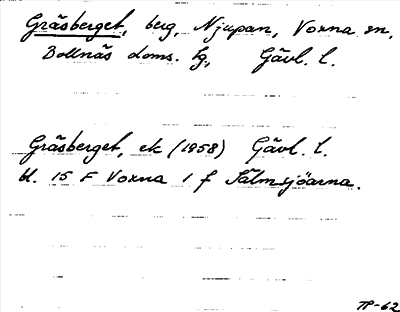 Gräsberget, berg, Njupan, Voxna sn,
Bollnäs doms. tg, Gävl. l.
Gräsberget, ek (1958) Gävl. l.
bl. 15 F Voxna 1 f Sälmsjöarna.
TP-62